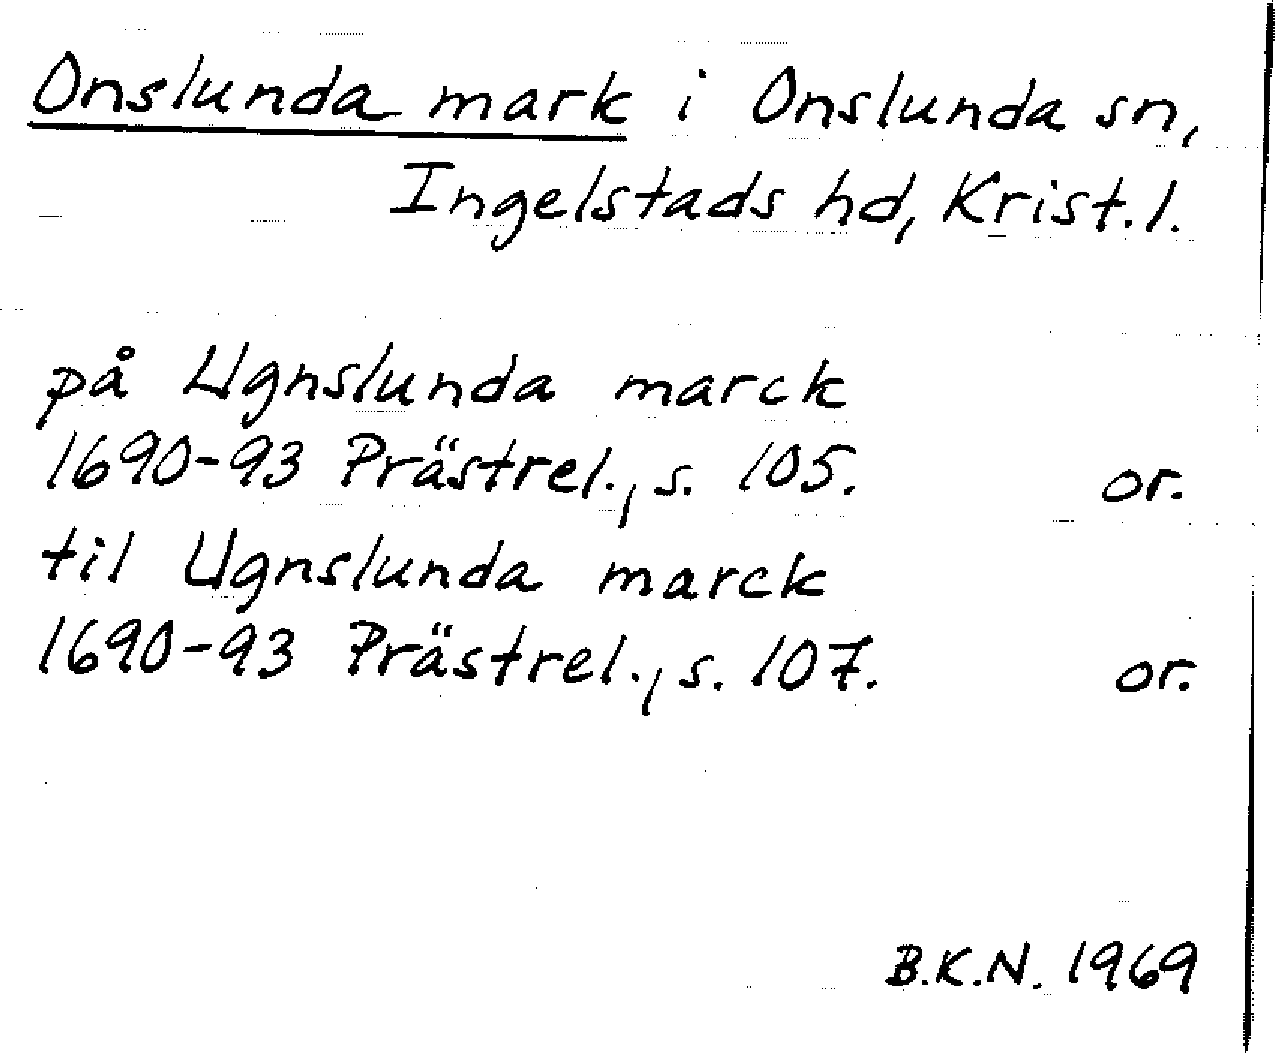 Onslunda mark i Onslunda sn,
Ingelstads hd, Krist.l.
på Ugnslunda marck
1690-93 Prästrel., s. 105. or.
til Ugnslunda marck
1690-93 Prästrel., s. 107. or.
B.K.N. 1969